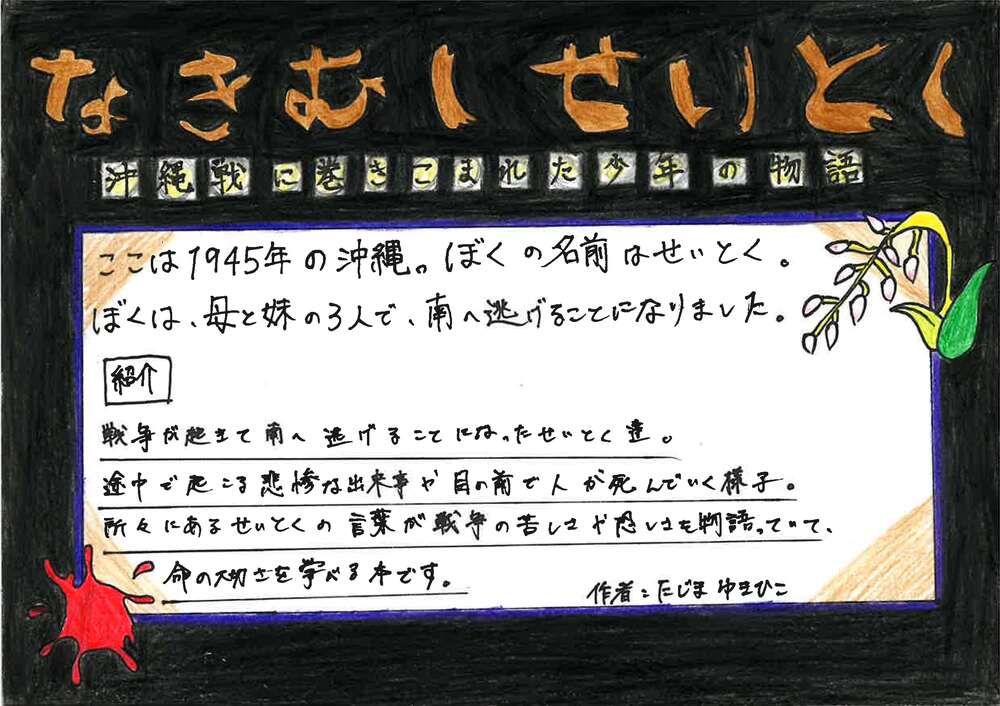 なきむしせいとく
沖縄戦に巻きこまれた少年の物語
ここは1945年の沖縄。ぼくの名前はせいとく。
ぼくは、母と妹の3人で、南へ逃げることになりました。
紹介
戦争が起きて南へ逃げることになったせいとく達。
途中で起こる悲惨な出来事や目の前で人が死んでいく様子。
所々にあるせいとくの言葉が戦争の苦しさや恐しさを物語っていて、
命の大切さを学べる本です。
作者:たじまゆきひこ